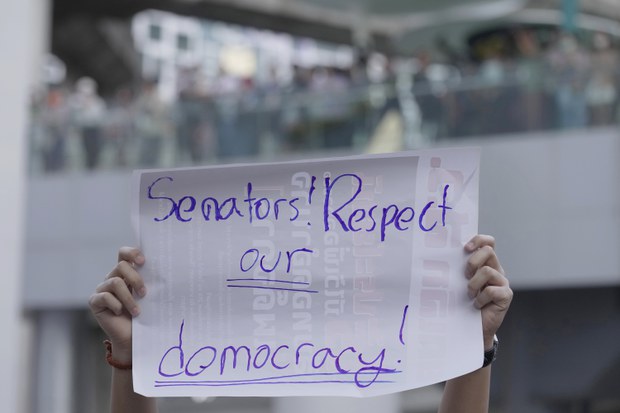 Senators! Respect
our
democracy!